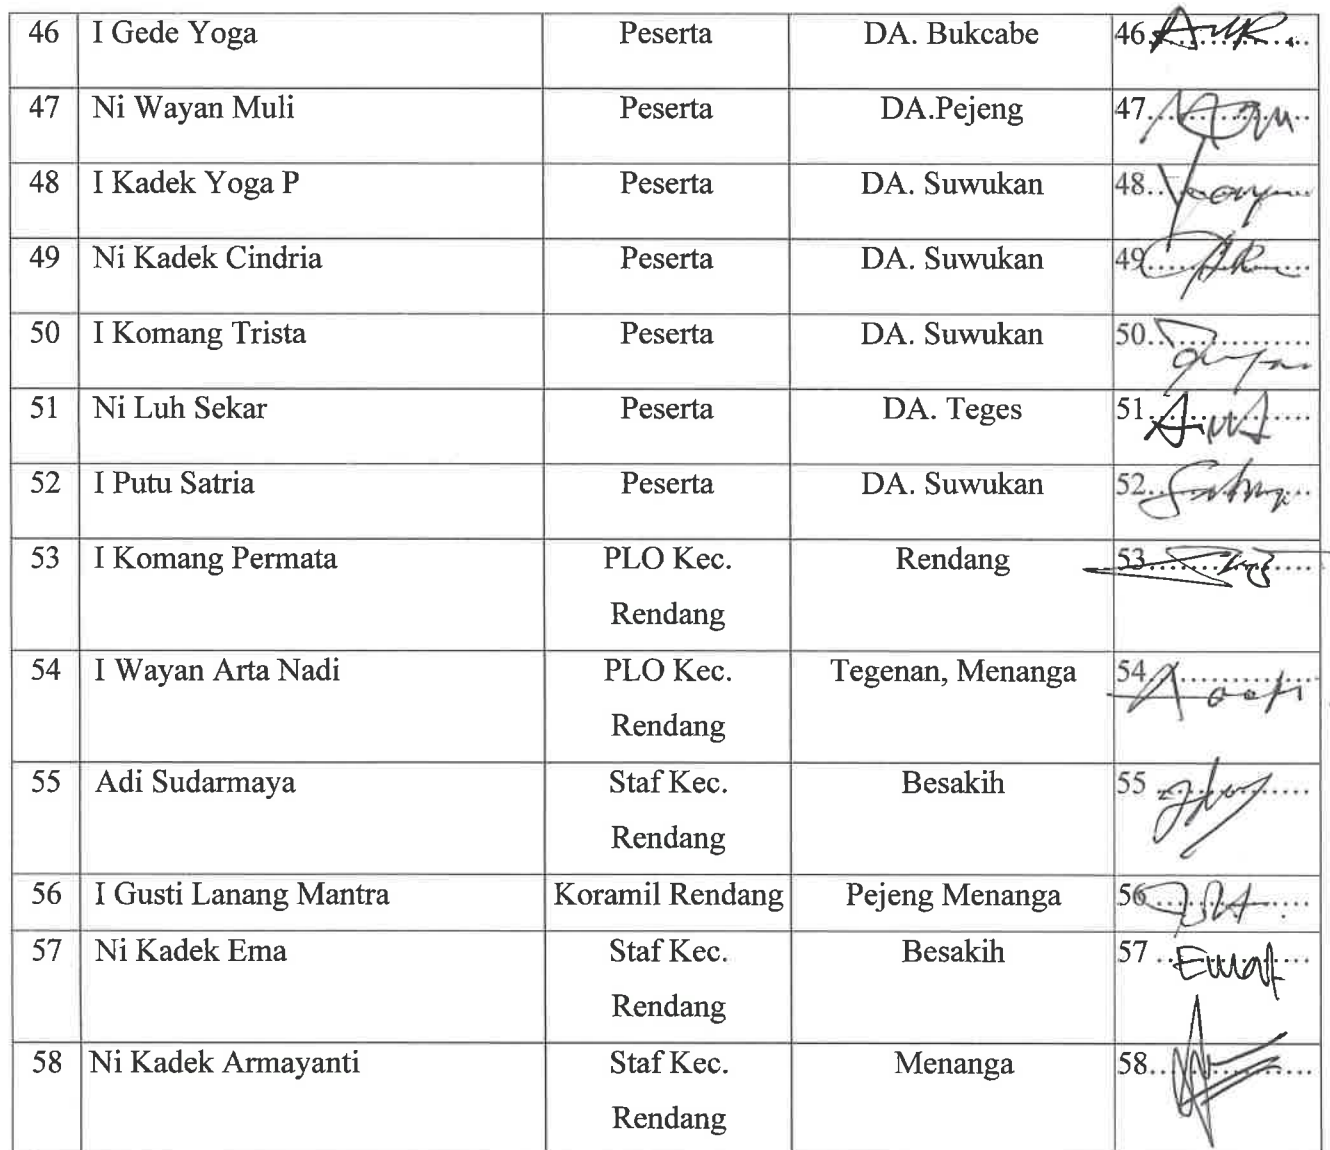 46 I Gede Yoga Peserta DA. Bukcabe 46..............
47 Ni Wayan Muli Peserta DA.Pejeng 47..............
48 I Kadek Yoga P Peserta DA. Suwukan 48..............
49 Ni Kadek Cindria Peserta DA. Suwukan 49..............
50 I Komang Trista Peserta DA. Suwukan 50..............
51 Ni Luh Sekar Peserta DA. Teges 51..............
52 I Putu Satria Peserta DA. Suwukan 52..............
53 I Komang Permata PLO Kec. Rendang 53..............
Rendang
54 I Wayan Arta Nadi PLO Kec. Tegenan, Menanga 54..............
Rendang
55 Adi Sudarmaya Staf Kec. Besakih 55 ..............
Rendang
56 I Gusti Lanang Mantra Koramil Rendang Pejeng Menanga 56..............
57 Ni Kadek Ema Staf Kec. Besakih 57 ..............
Rendang
58 Ni Kadek Armayanti Staf Kec. Menanga 58..............
Rendang